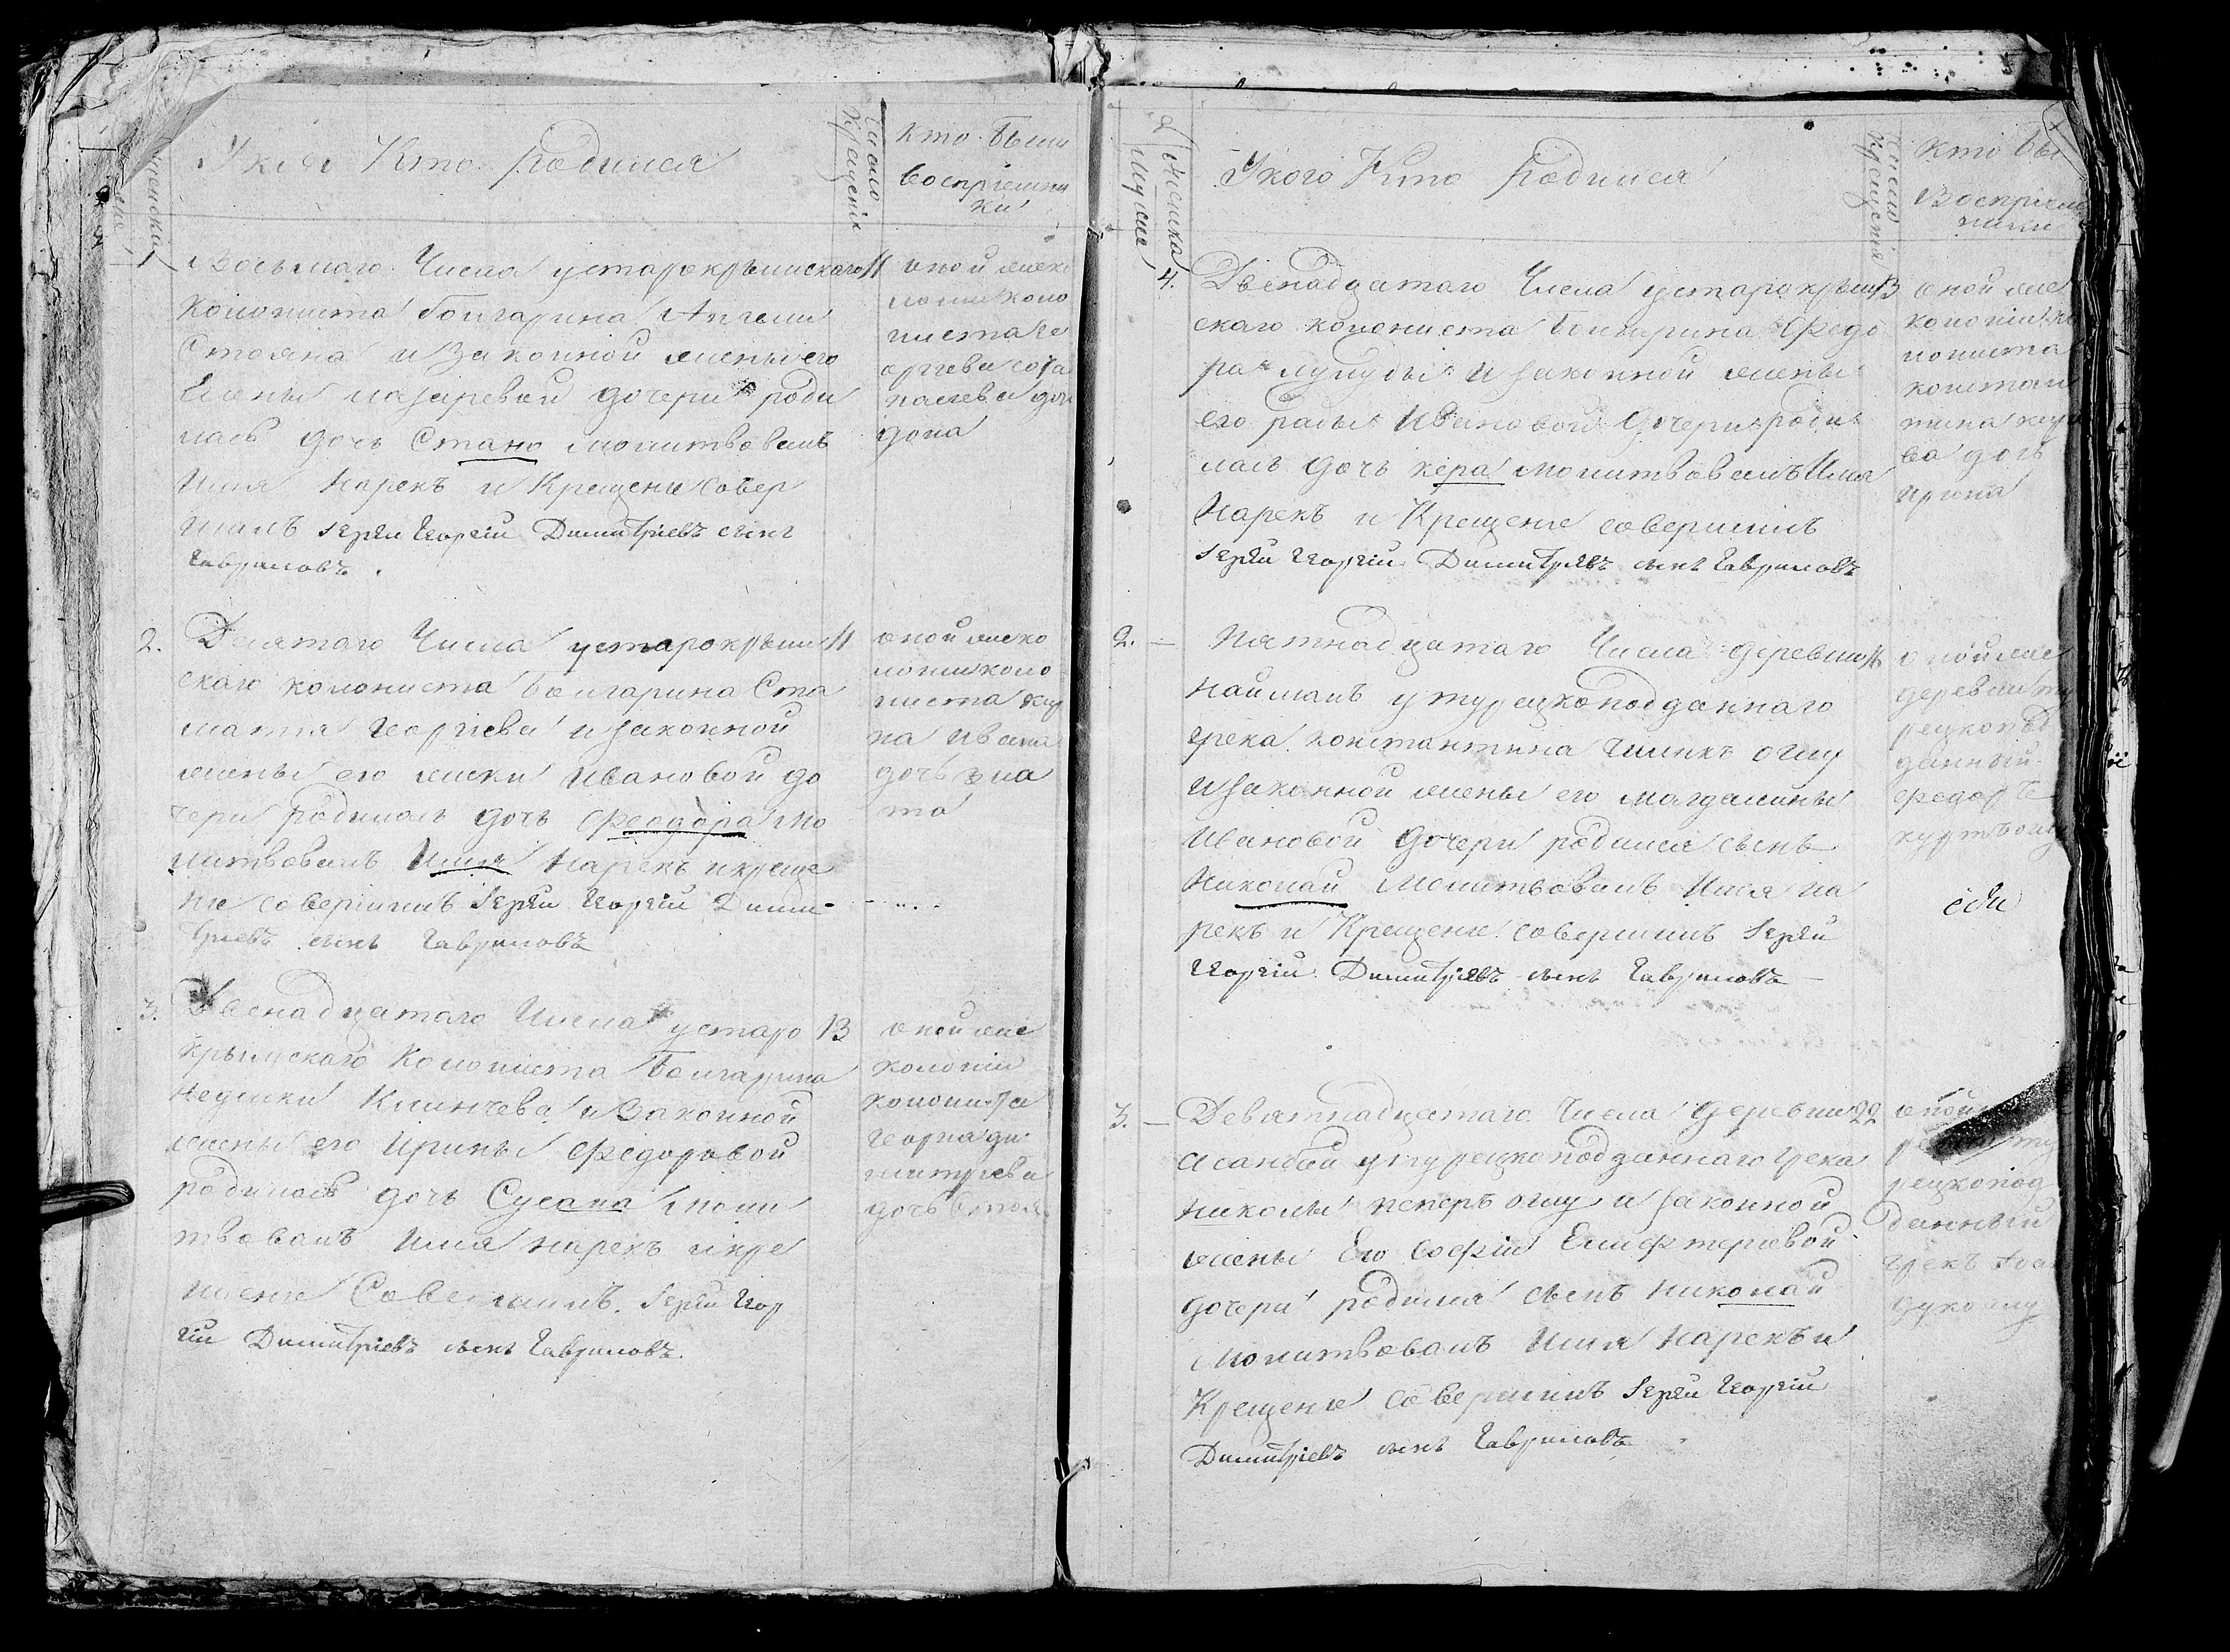 У кого Кто родился
Число Крещенія
Кто были
воспріемни
ки
1
Восьмаго Числа устарокрымскаго 11
колониста болгарина Ангели
Стояна и Законной жены его
Елены лазаревой дочери роди
лась дочь Стано молитвовалъ
Имя Нарекъ и Крещение Совер
шалъ Іерей Георгій Димитріевъ сынъ
Гавриловъ.
оной же ко
лоніи коло
ниста Ге
оргева
дочь
дона
2. Десятаго Числа устарокрым 11
скаго колониста болгарина Ста
матя Георгіева и законной
жены его Ивановой до
чери родилась дочь Феодора Мо
литвовалъ Имя Нарекъ и креще
ние совершилъ Іерей Георгій Дими
тріевъ сынъ Гавриловъ
оной же ко
лоніи коло
ниста
на Ивана
дочь зла
та
3. Двенадцатаго Числа устаро 13
крымскаго Колониста Болгарина
Неделки Клинчева и Законной
жены его Ирины Федоровой
родилась дочь Сусана моли
твовалъ Имя нарекъ и кре
щение Совершилъ. Іерей Геор
гій Димитріевъ сынъ Гавриловъ.
оной же
колоніи
колониста
Георгия ди
митрева
дочь Стоя
Женска
Мужска
У кого Кто родился
Число Крещенія
Кто бы
Воспріем
ники
4. Двенадцатаго Числа устарокрым 13
скаго колониста болгарина Федо
ра и законной жены
его рады Ивановой дочери роди
лась дочь кера Молитвовалъ Имя
Нарекъ и Крещение совершилъ
Іерей Георгій Димитріевъ сынъ Гавриловъ
оной же
колоніи ко
лониста
констан
тина
ва дочь
ирина
2. — Пятнадцатаго Числа деревни
Найманъ у турецкоподданнаго
грека константина оглу
и законной жены его магдалины
Ивановой дочери родился сынъ
Николай Молитвовалъ Имя на
рекъ и Крещение совершилъ Іерей
Георгій Димитріевъ сынъ Гавриловъ
оной же
деревни ту
рецкопод
данный
Федоръ
куртъ оглу
3. — Девятнадцатаго Числа деревни 22
Асанбай у турецкоподданнаго грека
Николы оглу и законной
жены Его Софіи Елифтеріевой
дочери родился сынъ Николай
Молитвовалъ Имя Нарекъ и
Крещение совершилъ Іерей Георгій
Димитріевъ сынъ Гавриловъ
оной
ту
рецкопод
данный
грекъ
оглу